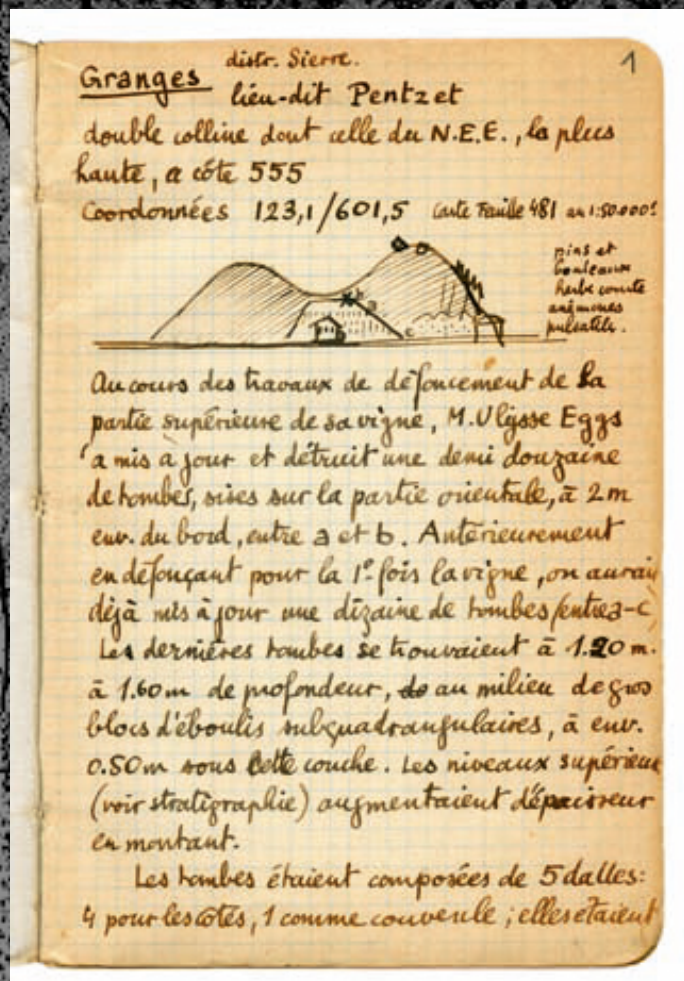 1
Granges distr. Sierre.
lieu-dit Pentzet
double colline dont celle du N.E.E., la plus
haute, a côte 555
Coordonnées 123,1/601,5 Carte Feuille 481 au 1:50.000e
pins et
bouleaux
herbe courte
anémones
pulsatile.
a
b
c
Au cours des travaux de défoncement de la
partie supérieure de sa vigne, M. Ulysse Eggs
a mis à jour et détruit une demi douzaine
de tombes, sises sur la partie orientale, à 2 m
env. du bord, entre a et b. Antérieurement
en défonçant pour la 1e fois la vigne, on aurait
déjà mis à jour une dizaine de tombes (entre a-c)
Les dernières tombes se trouvaient à 1.20 m.
à 1.60 m de profondeur, au milieu de gros
blocs d'éboulis subquadrangulaires, à env.
0.50 m sous cette couche. Les niveaux supérieurs
(voir stratigraphie) augmentaient d'épaisseur
en montant.
Les tombes étaient composées de 5 dalles:
4 pour les côtés, 1 comme couvercle; elles étaient